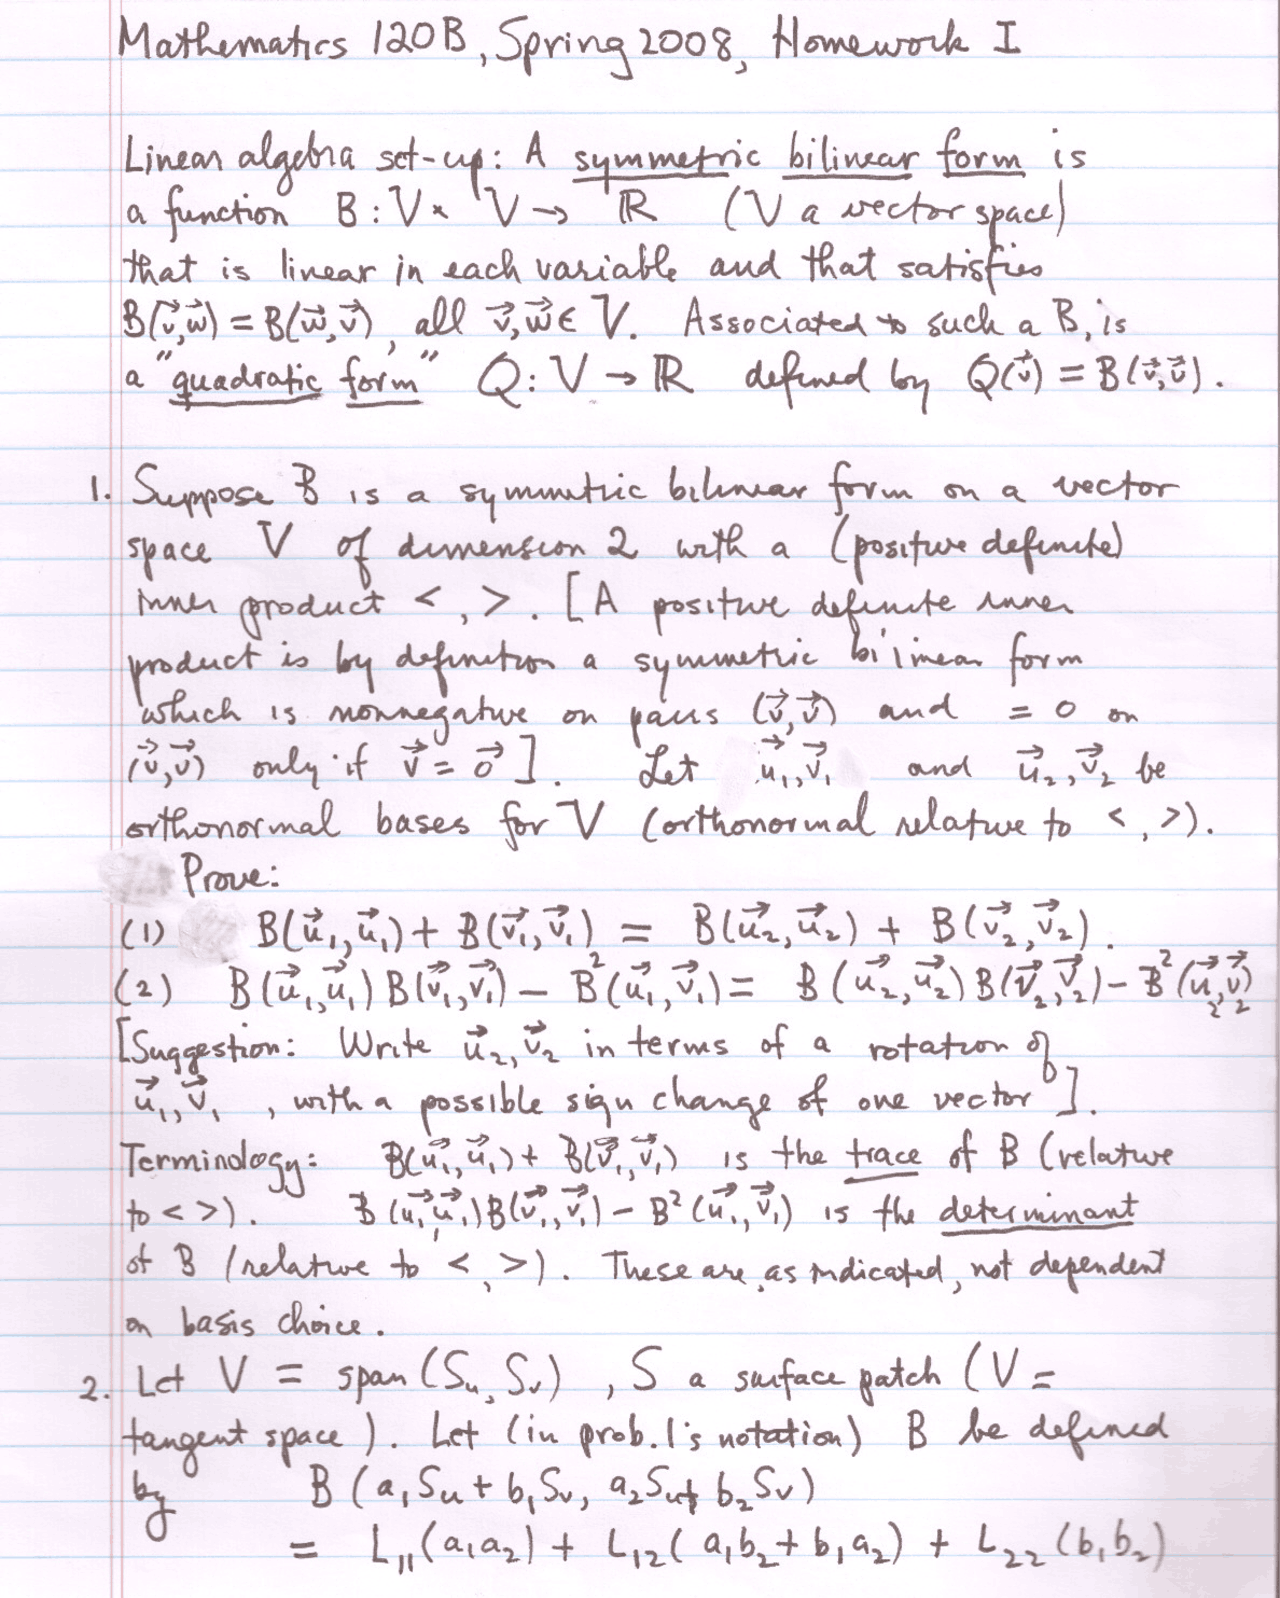 Mathematics 120B, Spring 2008, Homework I
Linear algebra set-up: A symmetric bilinear form is
a function B: V × V → ℝ (V a vector space)
that is linear in each variable and that satisfies
B(v⃗,w⃗) = B(w⃗,v⃗), all v⃗,w⃗ ∈ V. Associated to such a B, is
a "quadratic form" Q: V → ℝ defined by Q(v⃗) = B(v⃗,v⃗).
1. Suppose B is a symmetric bilinear form on a vector
space V of dimension 2 with a (positive definite)
inner product < , >. [A positive definite inner
product is by definition a symmetric bilinear form
which is nonnegative on pairs (v⃗,v⃗) and = 0 on
(v⃗,v⃗) only if v⃗ = 0⃗]. Let u⃗₁,v⃗₁ and u⃗₂,v⃗₂ be
orthonormal bases for V (orthonormal relative to < , >).
Prove:
(1) B(u⃗₁,u⃗₁) + B(v⃗₁,v⃗₁) = B(u⃗₂,u⃗₂) + B(v⃗₂,v⃗₂).
(2) B(u⃗₁,u⃗₁)B(v⃗₁,v⃗₁) − B²(u⃗₁,v⃗₁) = B(u⃗₂,u⃗₂)B(v⃗₂,v⃗₂) − B²(u⃗₂,v⃗₂)
[Suggestion: Write u⃗₂,v⃗₂ in terms of a rotation of
u⃗₁,v⃗₁, with a possible sign change of one vector].
Terminology: B(u⃗₁,u⃗₁) + B(v⃗₁,v⃗₁) is the trace of B (relative
to < >). B(u⃗₁,u⃗₁)B(v⃗₁,v⃗₁) − B²(u⃗₁,v⃗₁) is the determinant
of B (relative to < , >). These are, as indicated, not dependent
on basis choice.
2. Let V = span(Sᵤ, Sᵥ), S a surface patch (V =
tangent space). Let (in prob. 1's notation) B be defined
by B(a₁Sᵤ + b₁Sᵥ, a₂Sᵤ + b₂Sᵥ)
= L₁₁(a₁a₂) + L₁₂(a₁b₂ + b₁a₂) + L₂₂(b₁b₂)